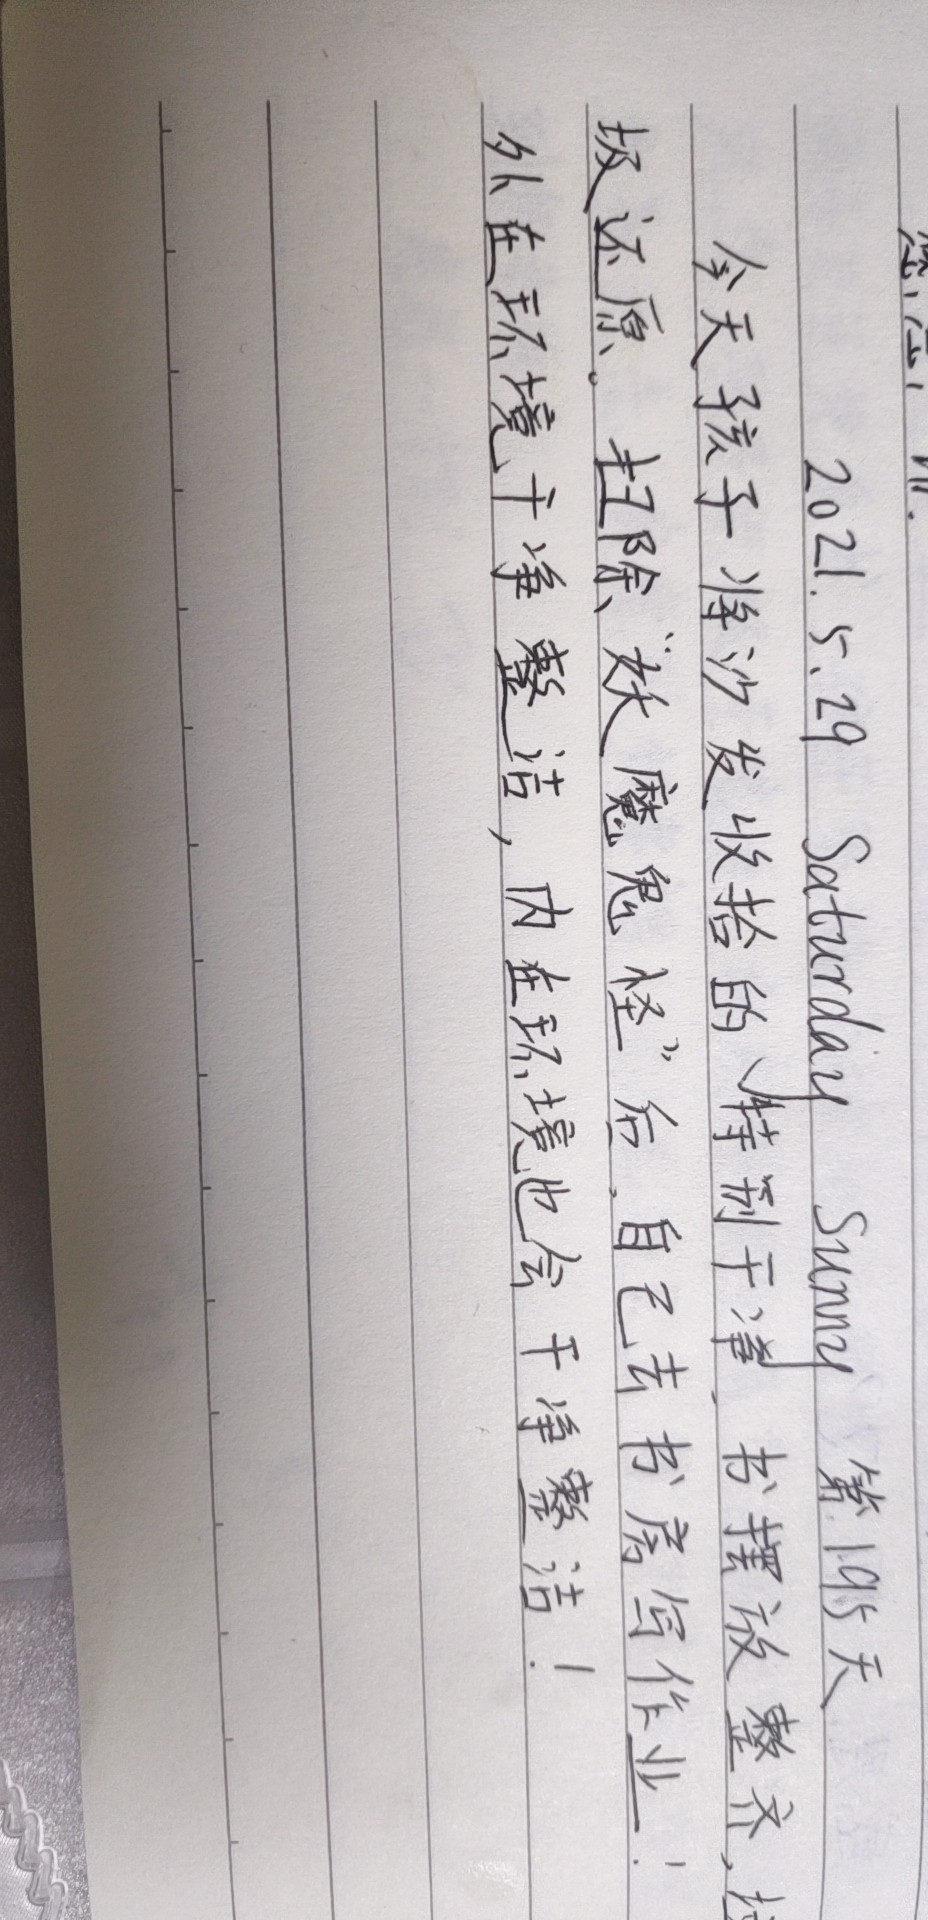 2021.5.29 Saturday Sunny 第195天
今天孩子将沙发收拾的特别干净、书摆放整齐,垃
圾还原。扫除“妖魔鬼怪”后、自己去书房写作业!
外在环境干净整洁,内在环境也会干净整洁!